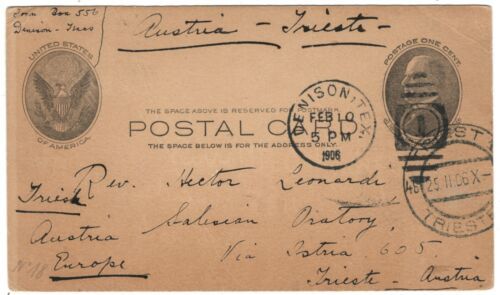 Box 556
Denison - Texas
Austria - Trieste -
UNITED STATES
OF AMERICA
POSTAGE ONE CENT
THE SPACE ABOVE IS RESERVED FOR POSTMARK.
POSTAL CARD
THE SPACE BELOW IS FOR THE ADDRESS ONLY.
DENISON, TEX.
FEB 10
5 PM
1906
1
TRIEST
25 11 06 X-
TRIESTE
Rev. Hector Leonardi
Trieste
Salesian Oratory,
Austria
Via Istria 605
Europe
Trieste - Austria